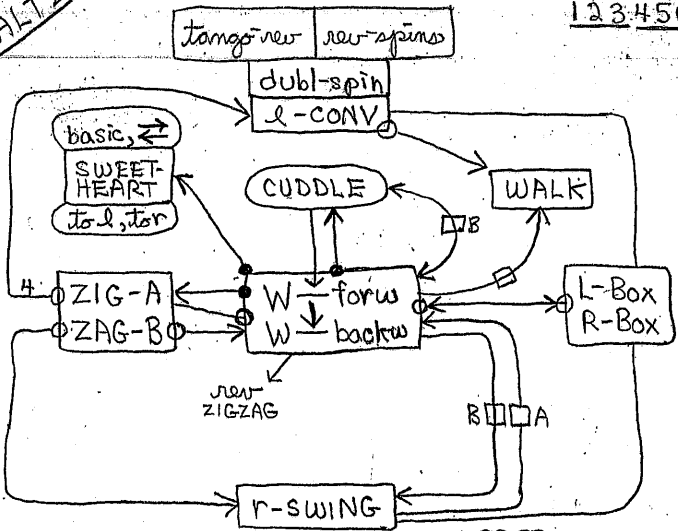 123456
tango-rev rev-spins
dubl-spin
l-CONV
basic, ⇄
SWEET-
HEART
to l, to r
CUDDLE
WALK
B
4
ZIG-A
ZAG-B
W — forw
W — backw
L-Box
R-Box
rev
ZIGZAG
B A
r-SWING